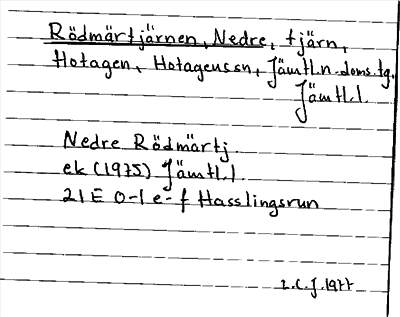 Rödmärtjärnen, Nedre, tjärn,
Hotagen, Hotagens sn, Jämtl.n.doms.tg.
Jämtl.l.
Nedre Rödmärtj.
ek (1975) Jämtl.l
21E 0-1 e-f Hasslingsrun
L.C.J.1977